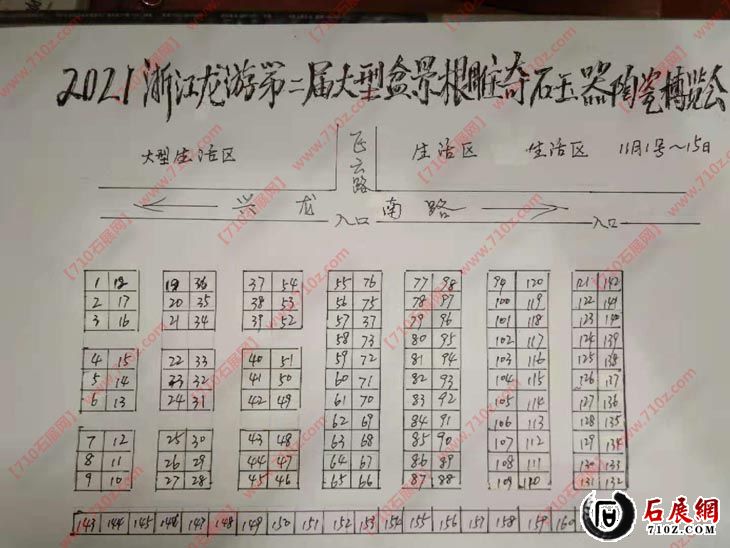 2021浙江龙游第二届大型盆景根雕奇石玉器陶瓷博览会
大型生活区 飞云路 生活区 生活区 11月1号~15日
兴龙南路
入口 入口
1 18 19 36 37 54 55 76 77 98 99 120 121 142
2 17 20 35 38 53 56 75 78 97 100 119 122 141
3 16 21 34 39 52 57 37 79 96 101 118 123 140
58 73 80 95 102 117 124 139
4 15 22 33 40 51 59 72 81 94 103 116 125 138
5 14 23 32 41 50 60 71 82 93 104 115 126 137
6 13 24 31 42 49 61 70 83 92 105 114 127 136
62 69 84 91 106 113 128 135
7 12 25 30 43 48 63 68 85 90 107 112 129 134
8 11 26 29 44 47 64 67 86 89 108 111 130 133
9 10 27 28 45 46 65 66 87 88 109 110 131 132
143 144 145 146 147 148 149 150 151 152 153 154 155 156 157 158 159 160
石展網
www.710z.com
【710石展网】www.710z.com